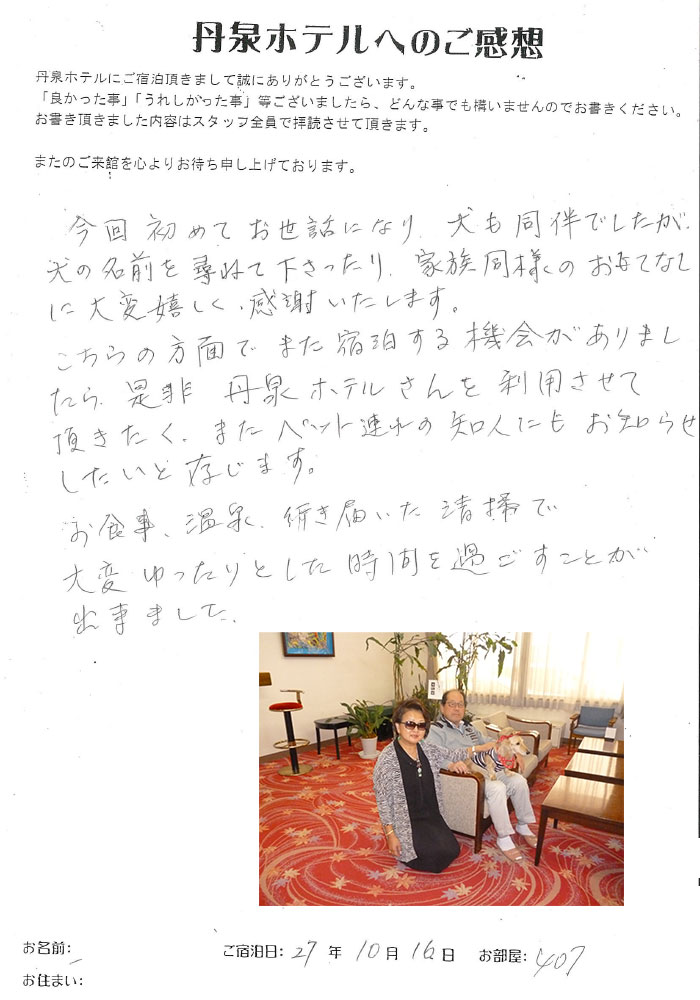 丹泉ホテルへのご感想
丹泉ホテルにご宿泊頂きまして誠にありがとうございます。
「良かった事」「うれしかった事」等ございましたら、どんな事でも構いませんのでお書きください。
お書き頂きました内容はスタッフ全員で拝読させて頂きます。
またのご来館を心よりお待ち申し上げております。
今回初めてお世話になり、犬も同伴でしたが、
犬の名前を尋ねて下さったり、家族同様のおもてなし
に大変嬉しく、感謝いたします。
こちらの方面でまた宿泊する機会がありまし
たら、是非 丹泉ホテルさんを利用させて
頂きたく、またペット連れの知人にもお知らせ
したいと存じます。
お食事、温泉、行き届いた清掃で
大変ゆったりとした時間を過ごすことが
出来ました。
お名前: ご宿泊日: 27 年 10 月 16 日 お部屋: 407
お住まい: